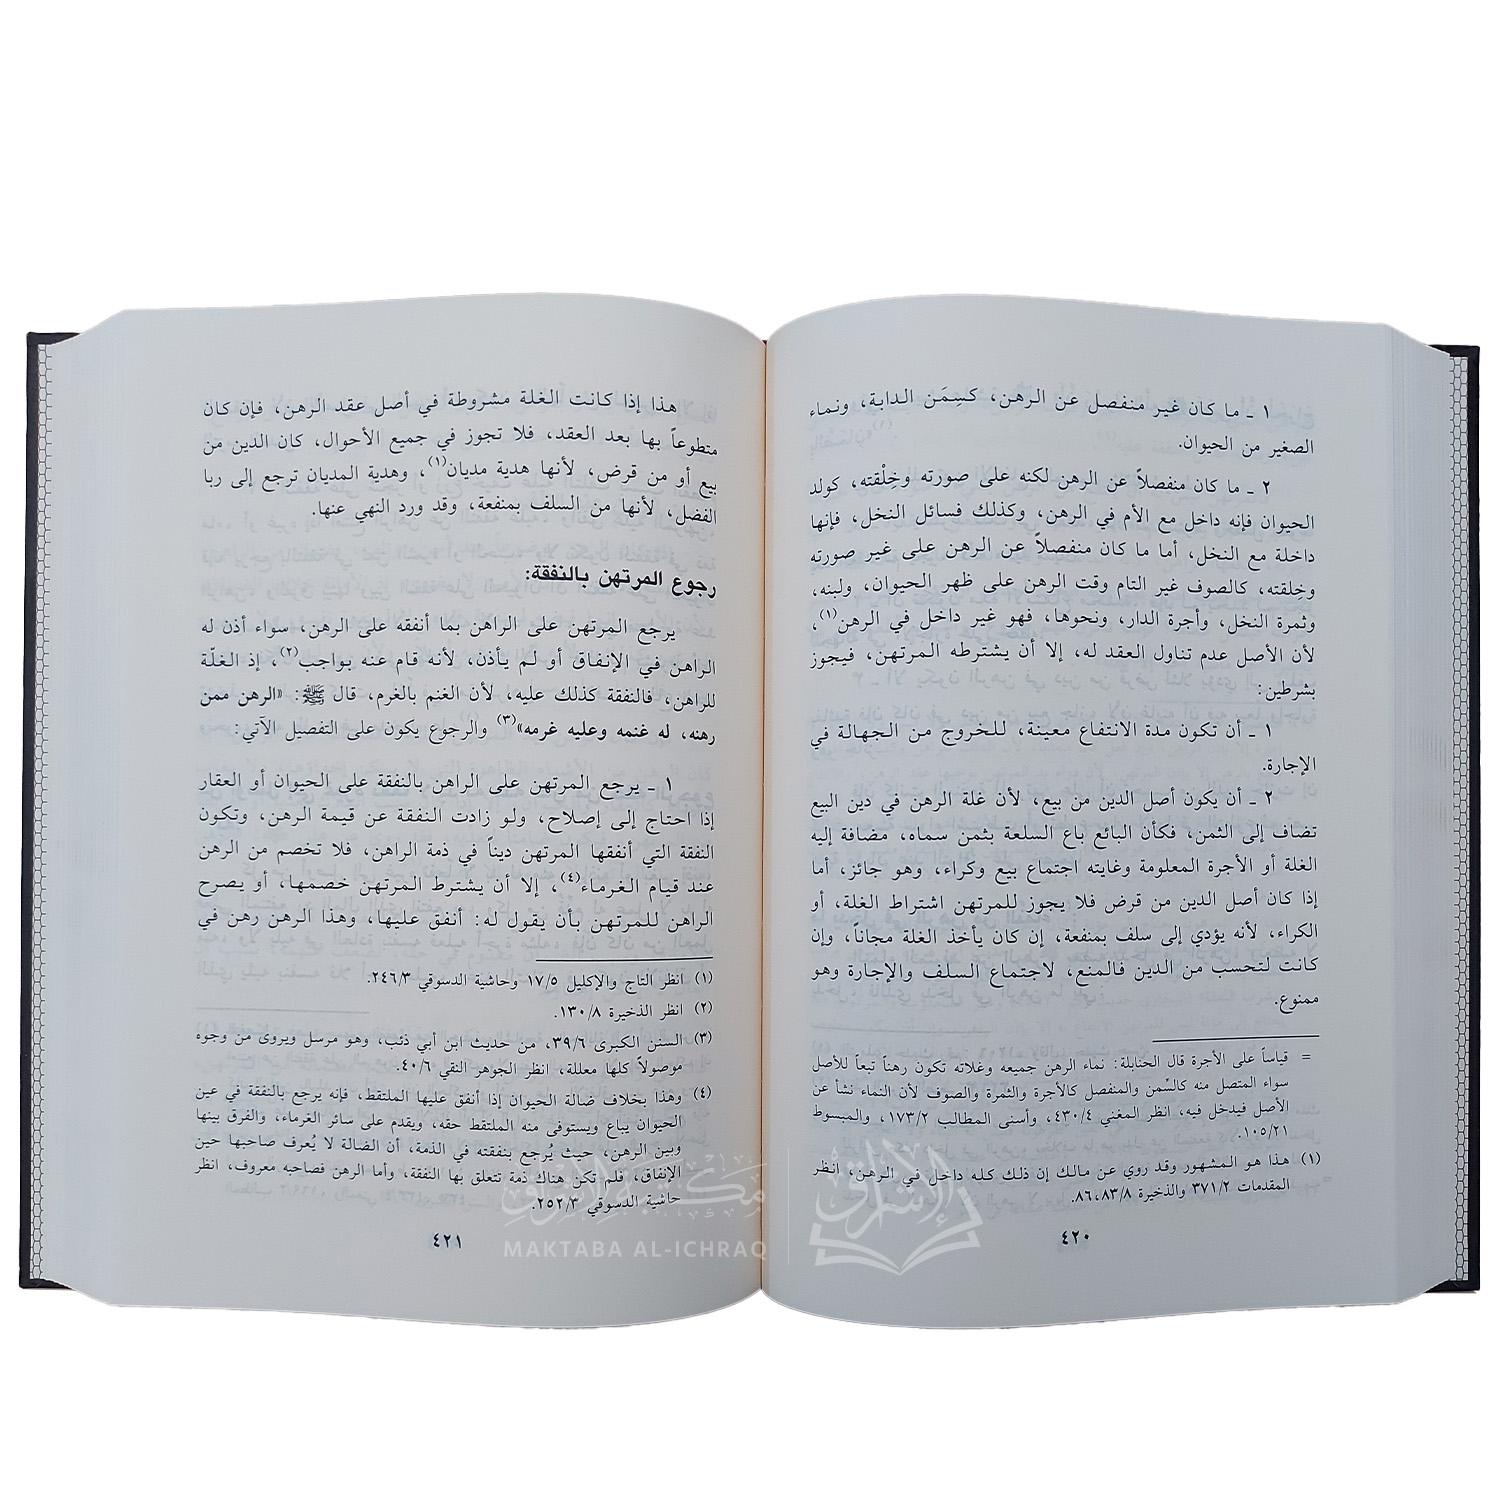 ١ ـ ما كان غير منفصل عن الرهن، كسِمَن الدابة، ونماء
الصغير من الحيوان.
٢ ـ ما كان منفصلاً عن الرهن لكنه على صورته وخِلْقته، كولد
الحيوان فإنه داخل مع الأم في الرهن، وكذلك فسائل النخل، فإنها
داخلة مع النخل، أما ما كان منفصلاً عن الرهن على غير صورته
وخِلقته، كالصوف غير التام وقت الرهن على ظهر الحيوان، ولبنه،
وثمرة النخل، وأجرة الدار، ونحوها، فهو غير داخل في الرهن(١)،
لأن الأصل عدم تناول العقد له، إلا أن يشترطه المرتهن، فيجوز
بشرطين:
١ ـ أن تكون مدة الانتفاع معينة، للخروج من الجهالة في
الإجارة.
٢ ـ أن يكون أصل الدين من بيع، لأن غلة الرهن في دين البيع
تضاف إلى الثمن، فكأن البائع باع السلعة بثمن سماه، مضافة إليه
الغلة أو الأجرة المعلومة وغايته اجتماع بيع وكراء، وهو جائز، أما
إذا كان أصل الدين من قرض فلا يجوز للمرتهن اشتراط الغلة، أو
الكراء، لأنه يؤدي إلى سلف بمنفعة، إن كان يأخذ الغلة مجاناً، وإن
كانت لتحسب من الدين فالمنع، لاجتماع السلف والإجارة وهو
ممنوع.
= قياساً على الأجرة قال الحنابلة: نماء الرهن جميعه وغلاته تكون رهناً تبعاً للأصل
سواء المتصل منه كالسِّمن والمنفصل كالأجرة والثمرة والصوف لأن النماء نشأ عن
الأصل فيدخل فيه، انظر المغني ٤٣٠/٤، وأسنى المطالب ١٧٣/٢، والمبسوط
١٠٥/٢١.
(١) هذا هو المشهور وقد روي عن مالك إن ذلك كله داخل في الرهن، انظر
المقدمات ٣٧١/٢ والذخيرة ٨٣/٨، ٨٦.
٤٢٠
هذا إذا كانت الغلة مشروطة في أصل عقد الرهن، فإن كان
متطوعاً بها بعد العقد، فلا تجوز في جميع الأحوال، كان الدين من
بيع أو من قرض، لأنها هدية مديان(١)، وهدية المديان ترجع إلى ربا
الفضل، لأنها من السلف بمنفعة، وقد ورد النهي عنها.
رجوع المرتهن بالنفقة:
يرجع المرتهن على الراهن بما أنفقه على الرهن، سواء أذن له
الراهن في الإنفاق أو لم يأذن، لأنه قام عنه بواجب(٢)، إذ الغلّة
للراهن، فالنفقة كذلك عليه، لأن الغنم بالغرم، قال ﷺ: «الرهن ممن
رهنه، له غنمه وعليه غرمه»(٣) والرجوع يكون على التفصيل الآتي:
١ ـ يرجع المرتهن على الراهن بالنفقة على الحيوان أو العقار
إذا احتاج إلى إصلاح، ولو زادت النفقة عن قيمة الرهن، وتكون
النفقة التي أنفقها المرتهن ديناً في ذمة الراهن، فلا تخصم من الرهن
عند قيام الغرماء(٤)، إلا أن يشترط المرتهن خصمها، أو يصرح
الراهن للمرتهن بأن يقول له: أنفق عليها، وهذا الرهن رهن في
(١) انظر التاج والإكليل ١٧/٥ وحاشية الدسوقي ٢٤٦/٣.
(٢) انظر الذخيرة ١٣٠/٨.
(٣) السنن الكبرى ٣٩/٦، من حديث ابن أبي ذئب، وهو مرسل ويروى من وجوه
موصولاً كلها معللة، انظر الجوهر النقي ٤٠/٦.
(٤) وهذا بخلاف ضالة الحيوان إذا أنفق عليها الملتقط، فإنه يرجع بالنفقة في عين
الحيوان يباع ويستوفى منه الملتقط حقه، ويقدم على سائر الغرماء، والفرق بينها
وبين الرهن، حيث يُرجع بنفقته في الذمة، أن الضالة لا يُعرف صاحبها حين
الإنفاق، فلم تكن هناك ذمة تتعلق بها النفقة، وأما الرهن فصاحبه معروف، انظر
حاشية الدسوقي ٢٥٢/٣.
٤٢١
مكتبة الإشراق
الإشراق
MAKTABA AL-ICHRAQ